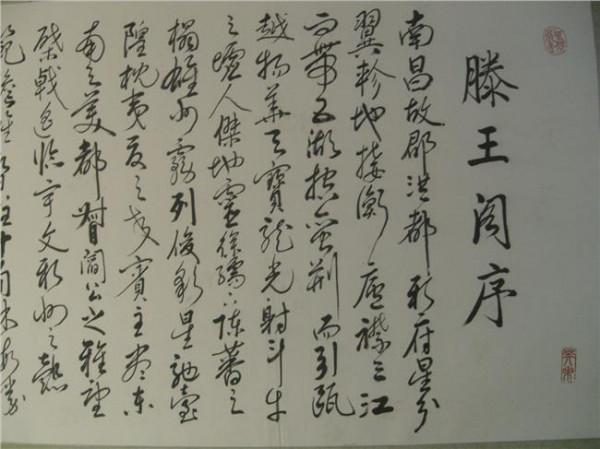 滕王阁序
南昌故郡洪都新府星分
翼轸地接衡庐襟三江
而带五湖控蛮荆而引瓯
越物華天寶龙光射斗牛
之墟人傑地靈徐孺下陈蕃之
榻雄州霧列俊彩星驰臺
隍枕夷夏之交賓主尽东
南之美都督閻公之雅望
棨戟遥临宇文新州之懿
範襜帷暂驻十旬休假勝